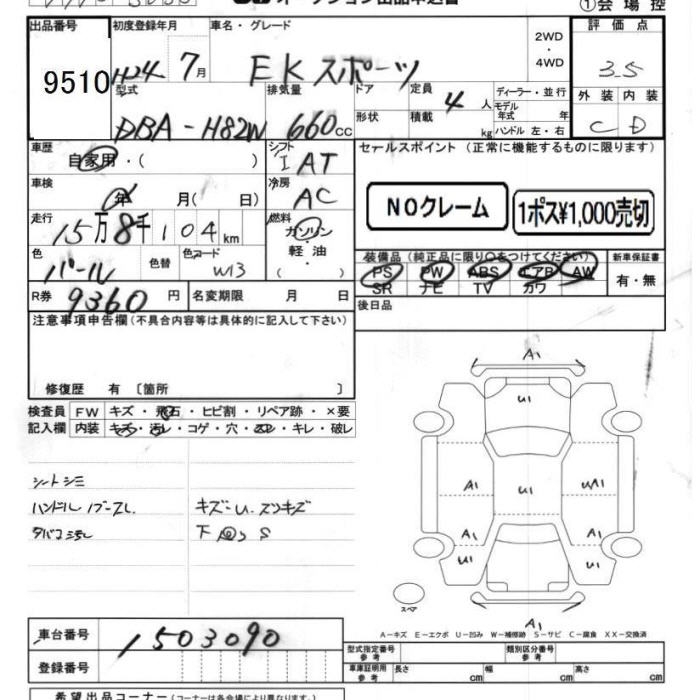 ①会場控
出品番号
9510
初度登録年月
H24年7月
車名・グレード
EKスポーツ
2WD
・
4WD
評価点
3.5
外装 内装
C D
型式
DBA-H82W
排気量
660cc
ドア
形状
定員
4人
積載
kg
ディーラー・並行
モデル
年式 年
ハンドル 左・右
車歴
自家用・( )
シフト
I AT
セールスポイント (正常に機能するものに限ります)
NOクレーム
1ポス¥1,000売切
車検
年 月( 日)
冷房
AC
走行
15万8千104km
燃料
ガソリン
・
軽油
・
( )
色
パール
色替
色コード
W13
装備品 (純正品に限り○をつけてください)
PS PW ABS エアB AW
SR ナビ TV カワ
新車保証書
有・無
R券 9360円
名変期限 月 日
後日品
注意事項申告欄(不具合内容等は具体的に記入して下さい)
修復歴 有 〔箇所 〕
検査員
記入欄
FW キズ・飛石・ヒビ割・リペア跡・×要
内装 キズ・汚レ・コゲ・穴・スレ・キレ・破レ
シートシミ
ハンドル
キズ・U.スリキズ
A1
U1
A1
U1
UA1
A1
A1
U1
U1
A1
スペア
A-キズ E-エクボ U-凹み W-補修跡 S-サビ C-腐食 XX-交換済
車台番号
1503090
登録番号
型式指定番号
参考
類別区分番号
参考
車庫証明用
参考
長さ cm 幅 cm 高さ cm
希望出品コーナー(コーナーは各会場により異なります。)